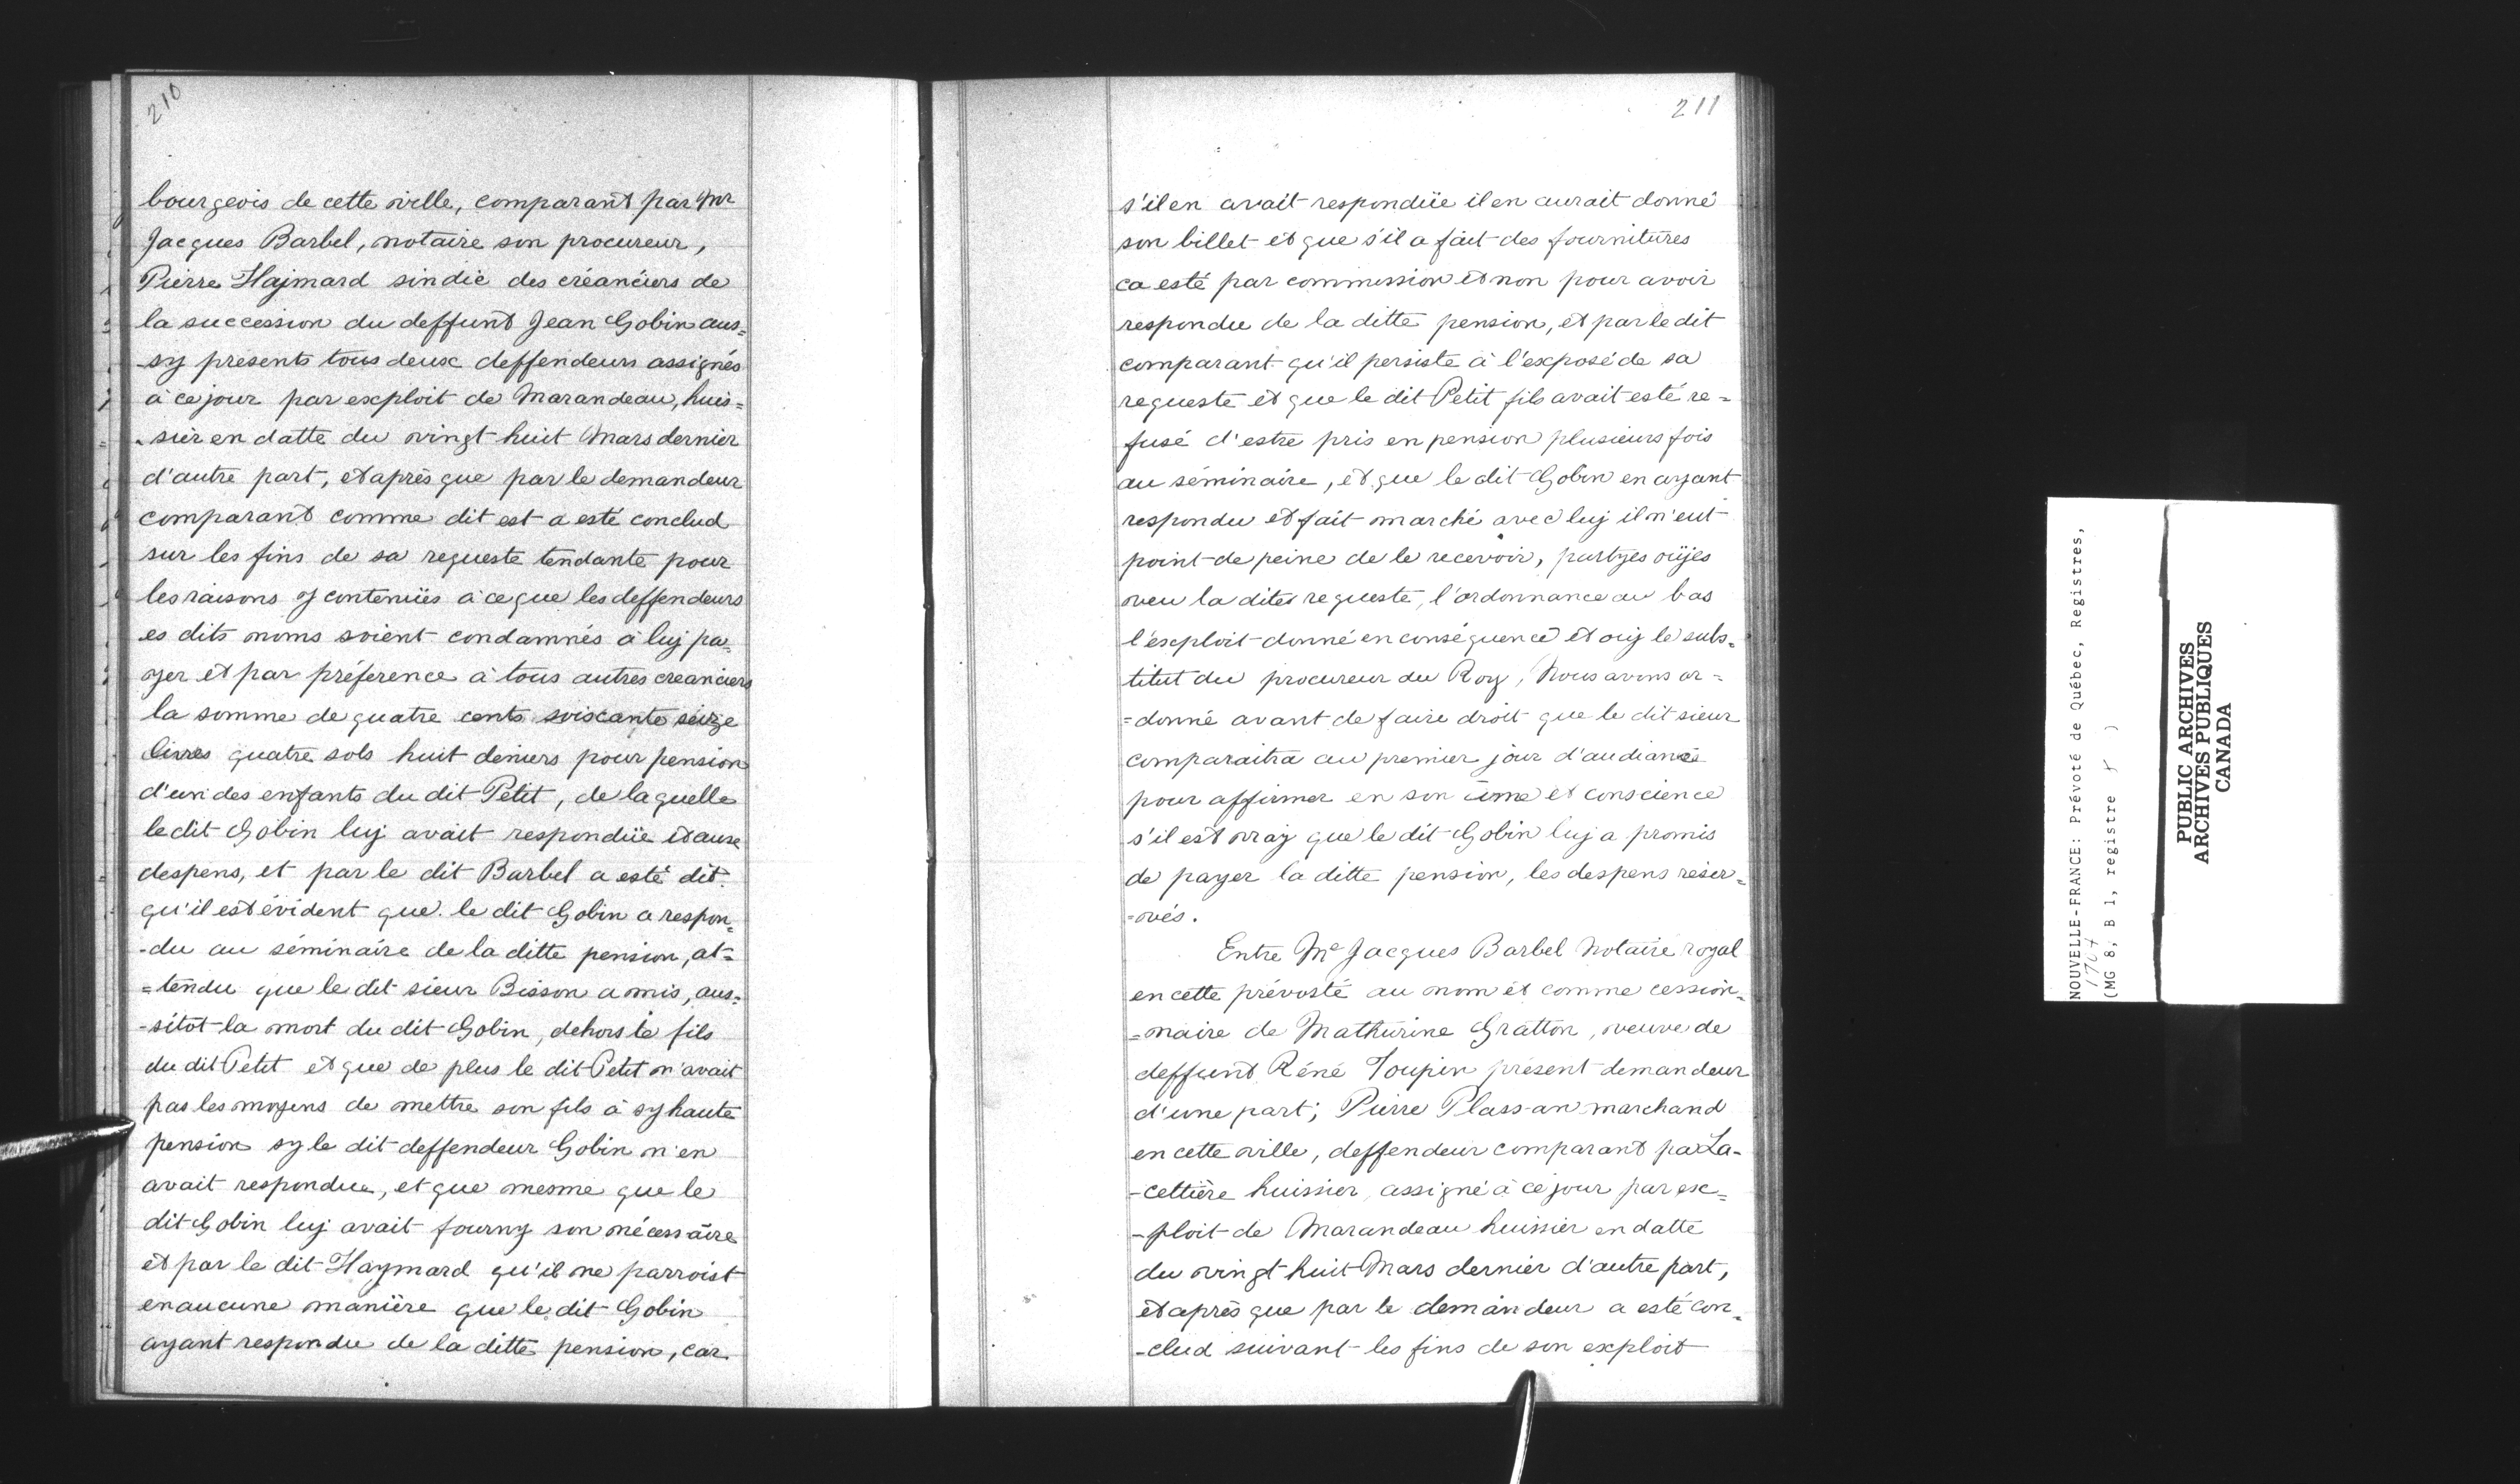 210
bourgeois de cette ville, comparant par Mr
Jacques Barbel, notaire son procureur,
Pierre Hajmard sindic des créanciers de
la succession du deffunt Jean Gobin aus=
-sy presents tous deux deffendeurs assignés
à ce jour par exploit de Marandeau, huis=
-sier en datte du vingt huit Mars dernier
d'autre part, et après que par le demandeur
comparant comme dit est a esté conclud
sur les fins de sa requeste tendante pour
les raisons y contenües à ce que les deffendeurs
es dits noms soient condamnés à luy pa=
yer et par préférence à tous autres creanciers
la somme de quatre cents soixante seize
livres quatre sols huit deniers pour pension
d'un des enfants du dit Petit, de laquelle
le dit Gobin luy avait respondüe et aux
despens, et par le dit Barbel a esté dit
qu'il est évident que le dit Gobin a respon=
-du au séminaire de la ditte pension, at=
=tendu que le dit sieur Bisson a mis, aus=
-sitôt la mort du dit Gobin, dehors le fils
du dit Petit et que de plus le dit Petit n'avait
pas les moyens de mettre son fils à sy haute
pension sy le dit deffendeur Gobin n'en
avait respondue, et que mesme que le
dit Gobin luy avait fourny son nécessaire
et par le dit Haymard qu'il ne parroist
en aucune manière que le dit Gobin
ayant respondu de la ditte pension, car
211
s'il en avait respondüe il en aurait donné
son billet et que s'il a fait des fournitures
ca esté par commission et non pour avoir
respondu de la ditte pension, et par le dit
comparant qu'il persiste à l'exposé de sa
requeste et que le dit Petit fils avait esté re=
fusé d'estre pris en pension plusieurs fois
au séminaire, et que le dit Gobin en ayant
respondu et fait marché avec luy il n'eut
point de peine de le recevoir, partyes oüjes
veu la dite requeste, l'ordonnance au bas
l'exploit donné en conséquence et ouy le subs=
titut du procureur du Roy, Nous avons or=
=donné avant de faire droit que le dit sieur
comparaitra au premier jour d'audiance
pour affirmer en son âme et conscience
s'il est vray que le dit Gobin luy a promis
de payer la ditte pension, les despens réser=
=vés.
Entre Me Jacques Barbel Notaire royal
en cette prévosté au nom et comme cession=
=naire de Mathurine Gratton, veuve de
deffunt Réné Toupin présent demandeur
d'une part; Pierre Plassan marchand
en cette ville, deffendeur comparant par La-
-cettière huissier, assigné à ce jour par ex=
-ploit de Marandeau huissier en datte
du vingt huit Mars dernier d'autre part,
et après que par le demandeur a esté con=
-clud suivant les fins de son exploit
NOUVELLE-FRANCE: Prévoté de Québec, Registres,
1707
(MG 8, B 1, registre )
PUBLIC ARCHIVES
ARCHIVES PUBLIQUES
CANADA